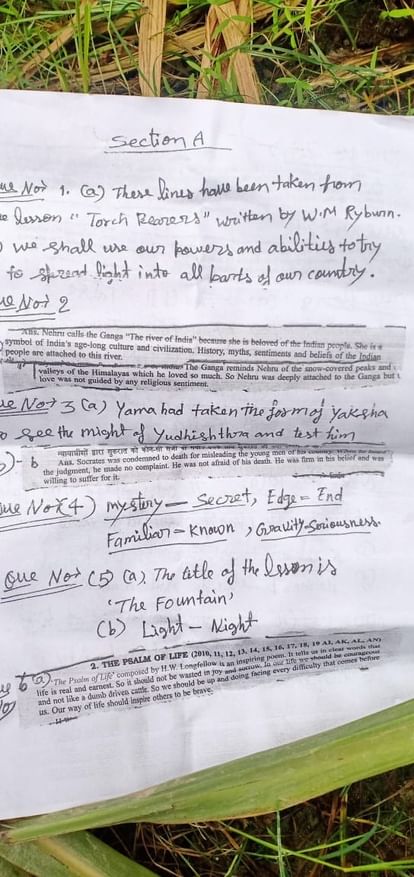 Section A
ue No 1. (a) These lines have been taken from
e lesson "Torch Bearers" written by W.M Ryburn.
) we shall use our powers and abilities to try
to spread light into all parts of our country.
ue No 2
Ans. Nehru calls the Ganga "The river of India" because she is beloved of the Indian people. She is a
symbol of India's age-long culture and civilization. History, myths, sentiments and beliefs of the Indian
people are attached to this river.
The Ganga reminds Nehru of the snow-covered peaks and
valleys of the Himalayas which he loved so much. So Nehru was deeply attached to the Ganga but
love was not guided by any religious sentiment.
ue No 3 (a) Yama had taken the form of Yaksha
o see the might of Yudhishthra and test him
)- b
Ans. Socrates was condemned to death for misleading the young men of his
the judgment, he made no complaint. He was not afraid of his death. He was firm in his belief and was
willing to suffer for it.
ue No 4) mystery – Secret, Edge = End
Familiar = Known, Gravity-Seriousness.
Que No (5) (a). The title of the lesson is
'The Fountain'
(b) Light – Night
2. THE PSALM OF LIFE (2010, 11, 12, 13, 14, 15, 16, 17, 18, 19 AI, AK, AL, AN)
6 (a) 'The Psalm of Life' composed by H.W. Longfellow is an inspiring poem. It tells us in clear words that
life is real and earnest. So it should not be wasted in joy and sorrow. In our life we should be courageous
and not like a dumb driven cattle. So we should be up and doing facing every difficulty that comes before
us. Our way of life should inspire others to be brave.